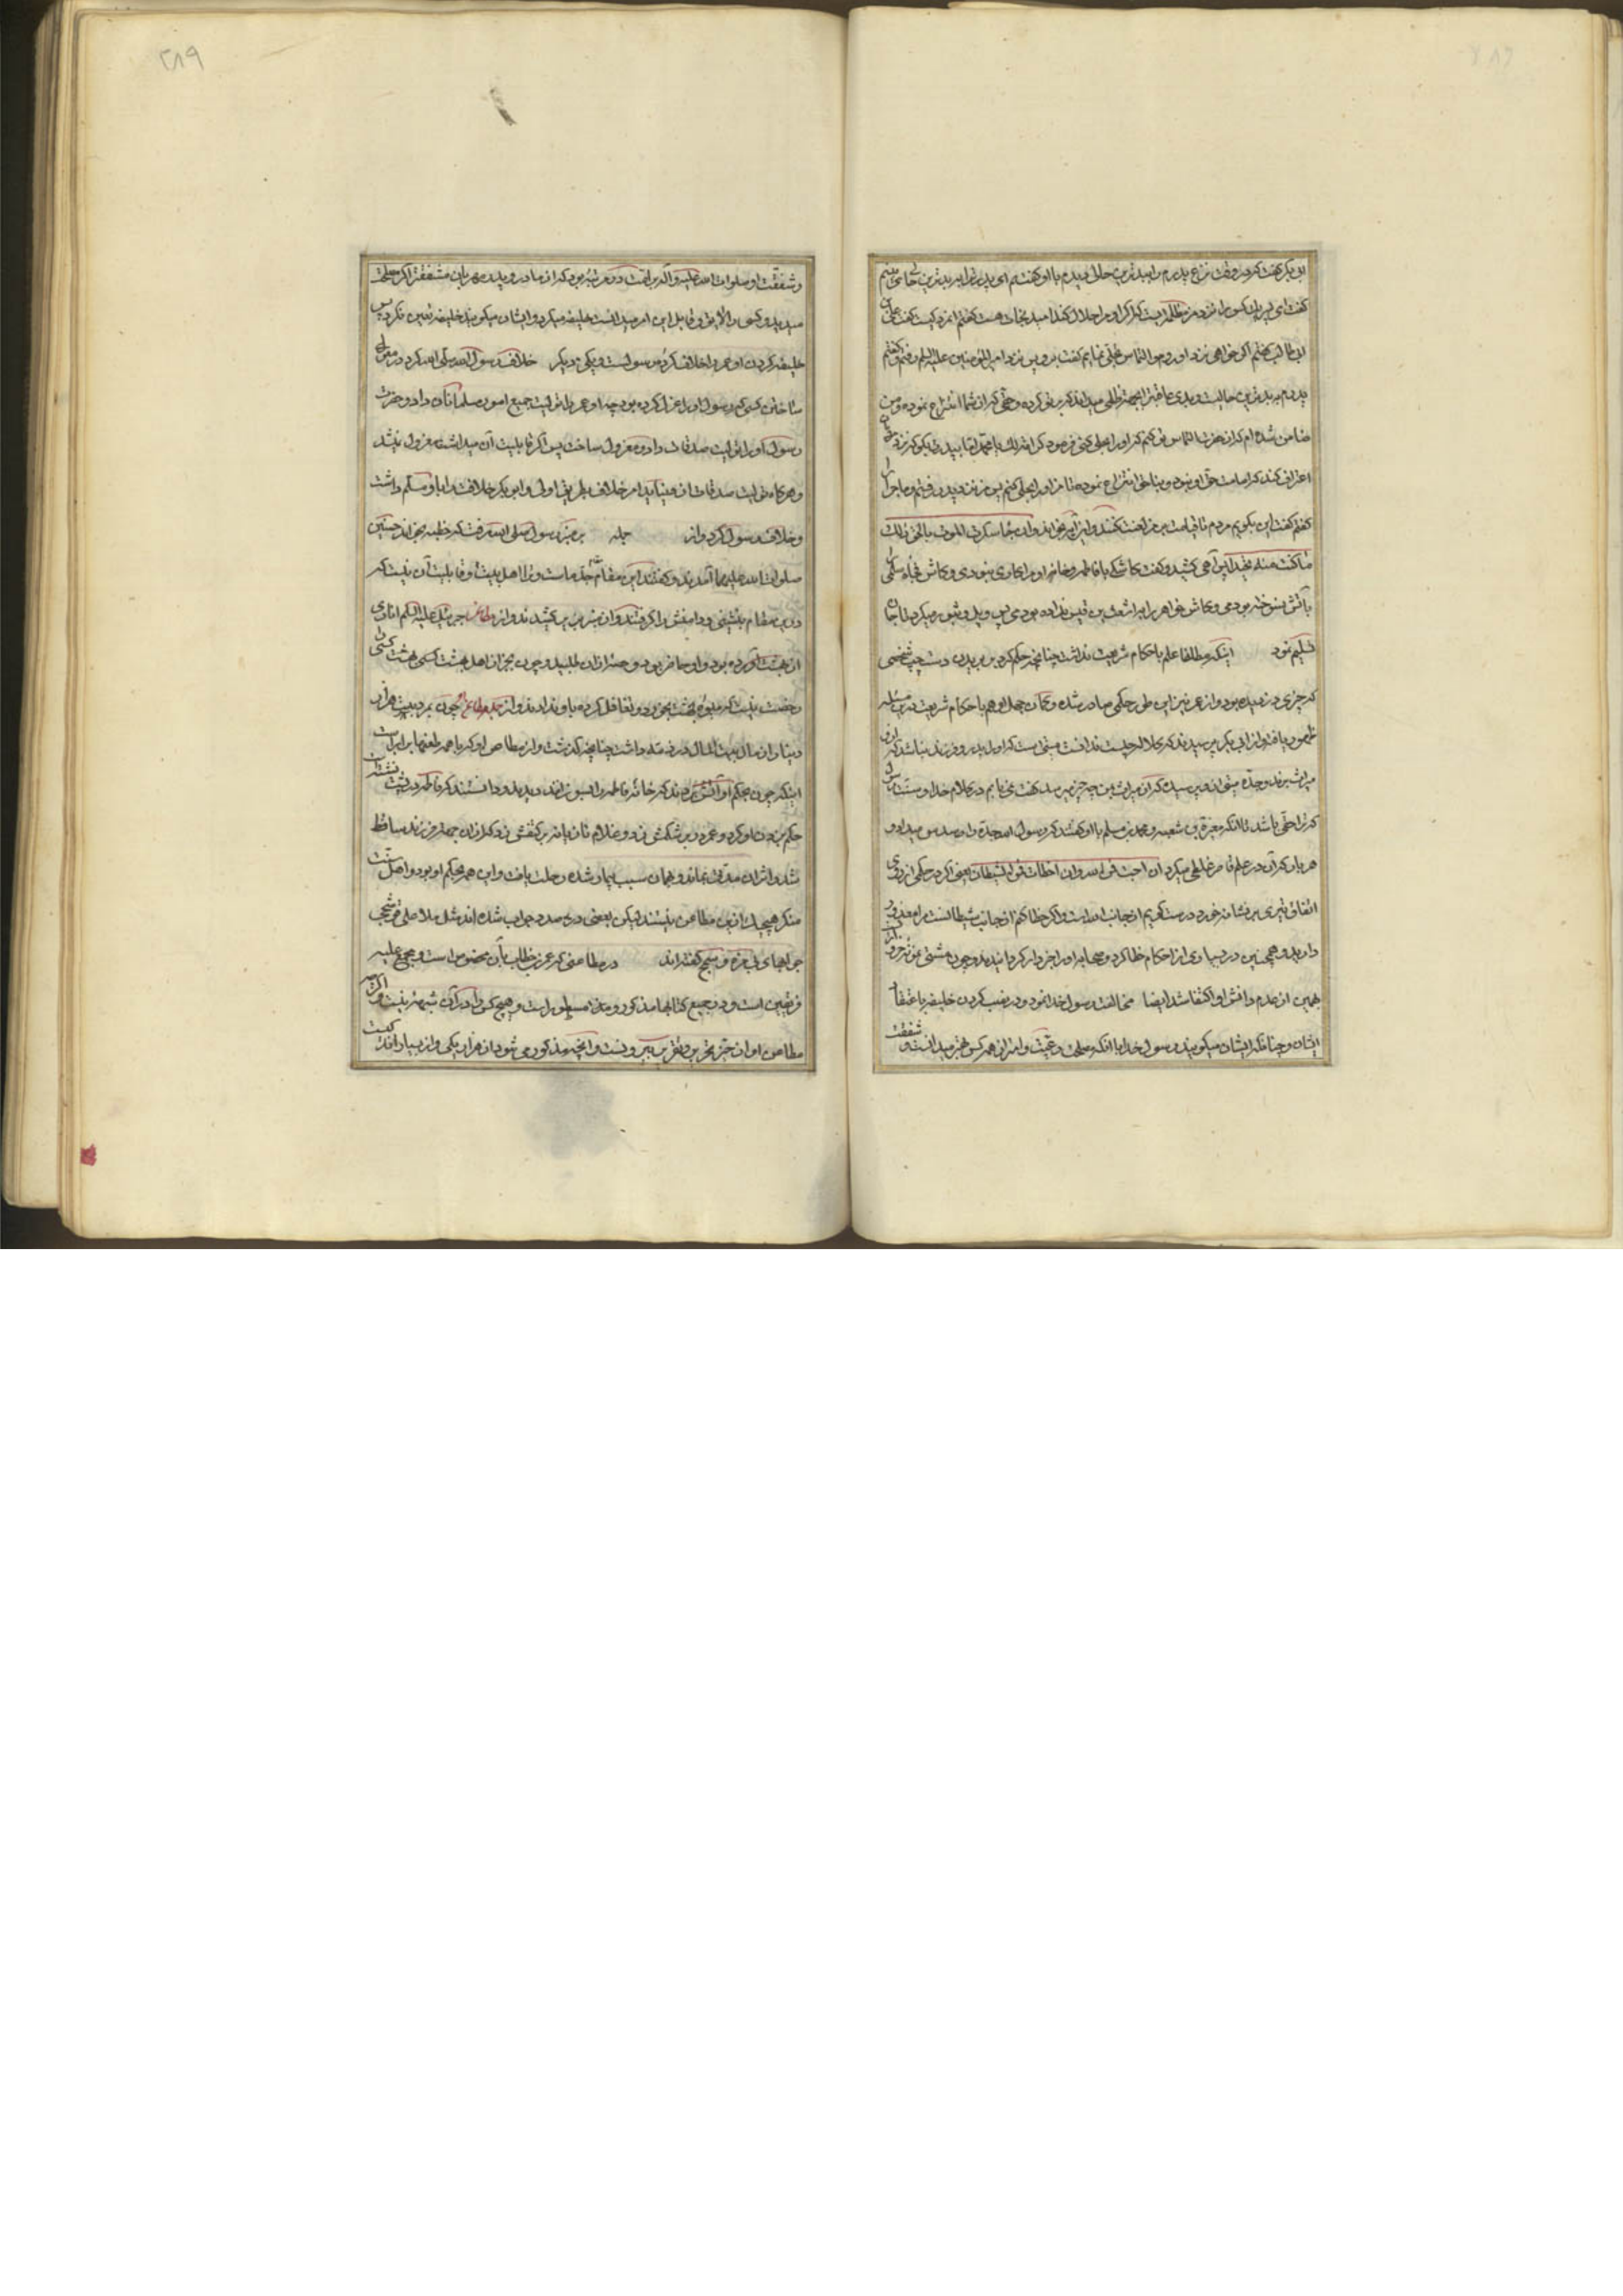 ابی بکر گفت که در وقت نزع پدرم را ببدترین حالی دیدم با او گفتم ای پدر ترا بر بدترین حالی می بینم
گفت ای پسر این کس را نزد من مظلمه ایست که اگر او مرا حلال کند امید نجات هست گفتم آنمرد کیست گفت علی بن
ابی طالب گفتم اگر خواهی نزد او روم و التماس نمایم گفت برو پس نزد امیر المؤمنین علیه السلم رفتم و گفتم
پدرم بر بدترین حالیست و بدی عاقبت را بجهة ظلمی میداند که بر تو کرده و حقی که از شما انتزاع نموده و من
ضامن شده ام که از حضرت التماس کنم که او را بحلی کنی فرمود کرامة لک اما پدرت بگو که نزد مردمان
اعتراف کند که امامت حق او نبود و بناحق انتزاع نموده تا من او را بحل کنم پس من نزد پدر رفتم و ماجرا را
گفتم گفت این بگویم مردم تا قیامت بر من لعنت کنند و این آیه بخواند و جاءت سکرة الموت بالحق ذلک
ما کنت منه تحید آهی کشید و گفت کاشکی با فاطمه و خانه او مرا کاری نبودی و کاش فجاه سلمی را
بآتش نسوخته بودمی و کاش خواهر را به اشعث بن قیس نداده بودمی پس ویل و ثبور میکرد تا جان
تسلیم نمود اینکه مطلقا علم باحکام شریعت نداشت چنانچه حکم کرد بر بریدن دست چپ شخصی
که چیزی دزدیده بود و از عمر نیز این طور حکمی صادر شده و کمان جهل او هم باحکام شریعت درین مسئله
ظهور یافته و از ابی بکر پرسیدند که کلاله چیست ندانست
میراث برند و جده متوفی پرسیده که از میراث من چه چیز میرسد گفت نمی یابم در کلام خدا و سنت رسول
که ترا حقی باشد تا آنکه مغیرة بن شعبه و محمد بن مسلم با او گفتند که رسول الله جده را سدس میداد و
هر بار که آن در علم قاصر غلطی میکرد ان احبت فمن الله و ان اخطات فمن الشیطان یعنی اگر در حکمی از روی
اتفاق تیری بر نشانه خورد و درست گویم از جانب الله است و اگر خطا کنم از جانب شیطانست مرا معذور
دارید و همچنین در بسیاری از احکام خطا کرد و صحابه او را خبردار کردانیدند و چون مشتی نمونه خروار
بهمین از عدم دانش او اکتفا شد ایضا مخالفت رسول خدا نمود در نصب کردن خلیفه باعتقاد
ایشان و چنانکه ایشان میگویند رسول خدا با آنکه صلاح رعیت و امت را از همه کس بهتر میدانست و شفقت
و شفقت او صلوات الله علیه و آله بر امت در مرتبه بود که از مادر و پدر مهربان مشفقتر اگر مصلحت
میدید و کسی را لایق و قابل این امر میدانست خلیفه میکرد و ایشان میگویند خلیفه تعین نکرد پس
خلیفه کردن او عمر را خلاف کرده رسولست و یکی دیگر خلاف رسول الله صلی الله کرد در متولی
ساختن کسی که رسول او را عزل کرده بود چه او عمر را تولیت جمیع امور مسلمانان داد و حضرت
رسول او را تولیت صدقات داده معزول ساخت پس اگر قابلیت آن میداشت معزول نمیشد
و هر گاه تولیت صدقات از و نیاید امر خلافت بطریق اولی و ابو بکر خلافت را باو مسلم داشت
و خلاف رسول کرد و از جمله بر منبر رسول صلی الله رفت که خطبه بخواند حسنین
صلوات الله علیهما آمدند و گفتند این مقام جد ماست و ترا اهل بیت او قابلیت آن نیست که
درین مقام بنشینی و دامنش را گرفتند و از منبر بزیر کشیدند و از مطاعن جبرئیل علیه السلم اناری
از بهشت آورده بود و او حاضر بود و حصه از آن طلبید و چون بجز از اهل بهشت کسی را
رخصت نیست که میوه بهشت بخورد و تغافل کرده باو ندادند و از جمله مطاعن چون بمرد بیست هزار
دینار از مال بیت المال در ذمه داشت چنانچه گذشت و از مطاعن او که با همه طعنها برابر است
اینکه چون بحکم او آتش بردند که خانه فاطمه را بسوزانند و دیدند و دانستند که فاطمه در پشت
حکم بزدن او کرد و عمر در بر شکمش زد و غلام تازیانه بر کتفش زد که از آن جهة فرزند ساقط
شد و اثر آن مدتی بماند و همان سبب بیمار شده رحلت یافت و این همه بحکم او بود و اهل سنت
منکر هیچیک ازین مطاعن نیستند لیکن بعضی در صدد جواب شده اند مثل ملا علی قوشچی
جوابهای بی مزه و سمج گفته اند در مطاعنی که عمر بن خطاب بآن مخصوص است و مجمع علیه
فریقین است و در جمیع کتابها مذکور و مسطور است و هیچ کس را در آن شبهه نیست و اگر چه
مطاعن او از حیز تحریر و تقریر بیرونست و آنچه مذکور می شود از هزار یکی و از بسیار اندکیست